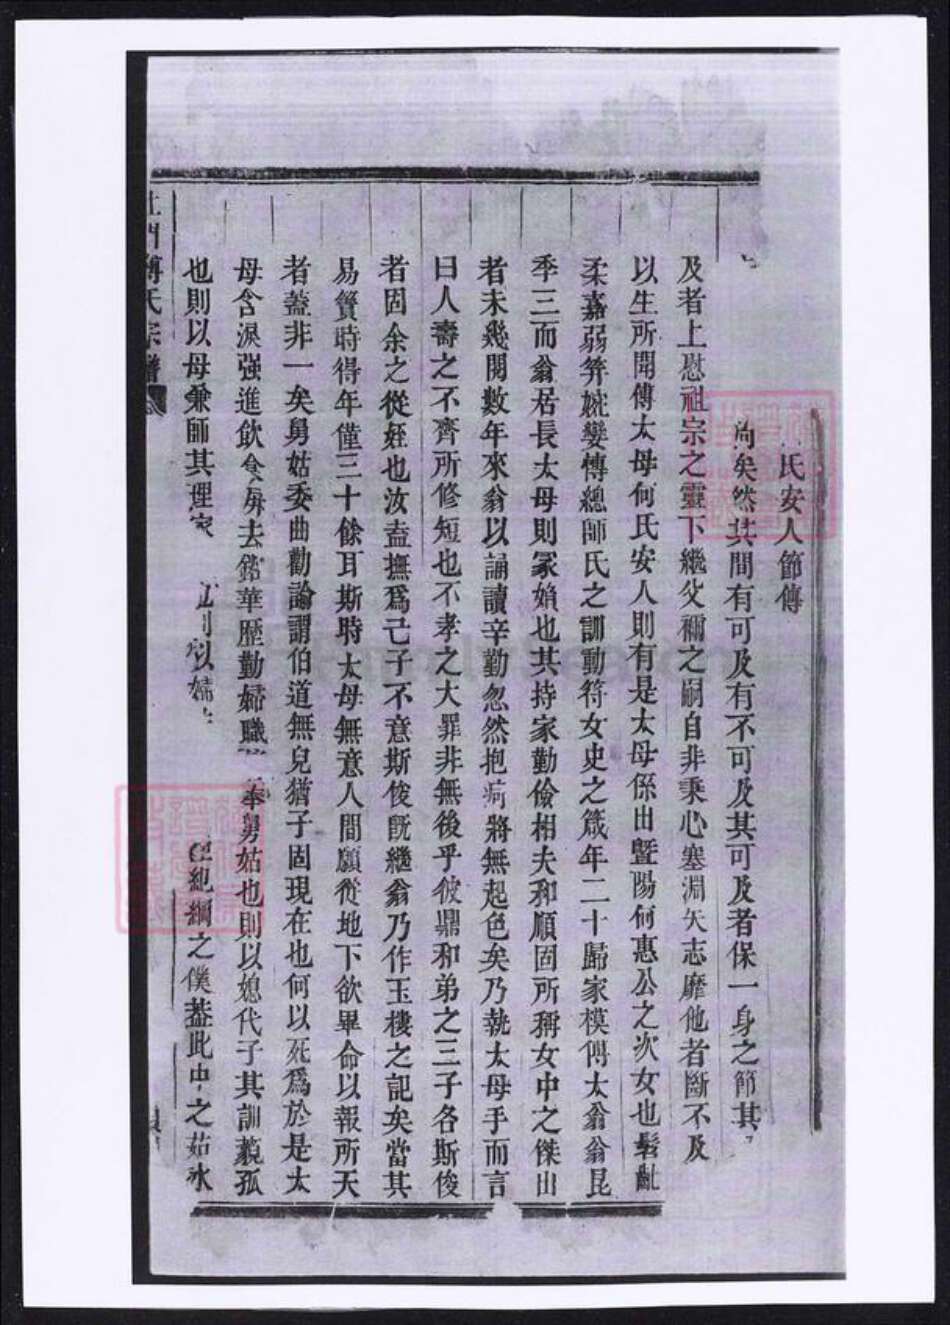 氏安人節傳
矣然其間有可及有不可及其可及者保一身之節其
及者上慰祖宗之靈下繼父禰之嗣自非秉心塞淵矢志靡他者斷不及
以生所聞傅太母何氏安人則有是太母係出暨陽何惠公之次女也髫齓
柔嘉弱笄婉孌傅總師氏之訓動符女史之箴年二十歸家模傅太翁翁昆
季三而翁居長太母則冢婦也其持家勤儉相夫和順固所稱女中之傑出
者未幾閱數年來翁以誦讀辛勤忽然抱病將無起色矣乃執太母手而言
曰人壽之不齊所修短也不孝之大罪非無後乎彼鼎和弟之三子各斯俊
者固余之從姪也汝盍撫爲己子不意斯俊旣繼翁乃作玉樓之記矣當其
易簀時得年僅三十餘耳斯時太母無意人間願從地下欲畢命以報所天
者蓋非一矣舅姑委曲勸諭謂伯道無兒猶子固現在也何以死爲於是太
母含淚强進飲食屏去鉛華歷勤婦職奉舅姑也則以媳代子其訓藐孤
也則以母兼師其理家則以紀綱之僕葢此中之茹冰
傅氏宗譜